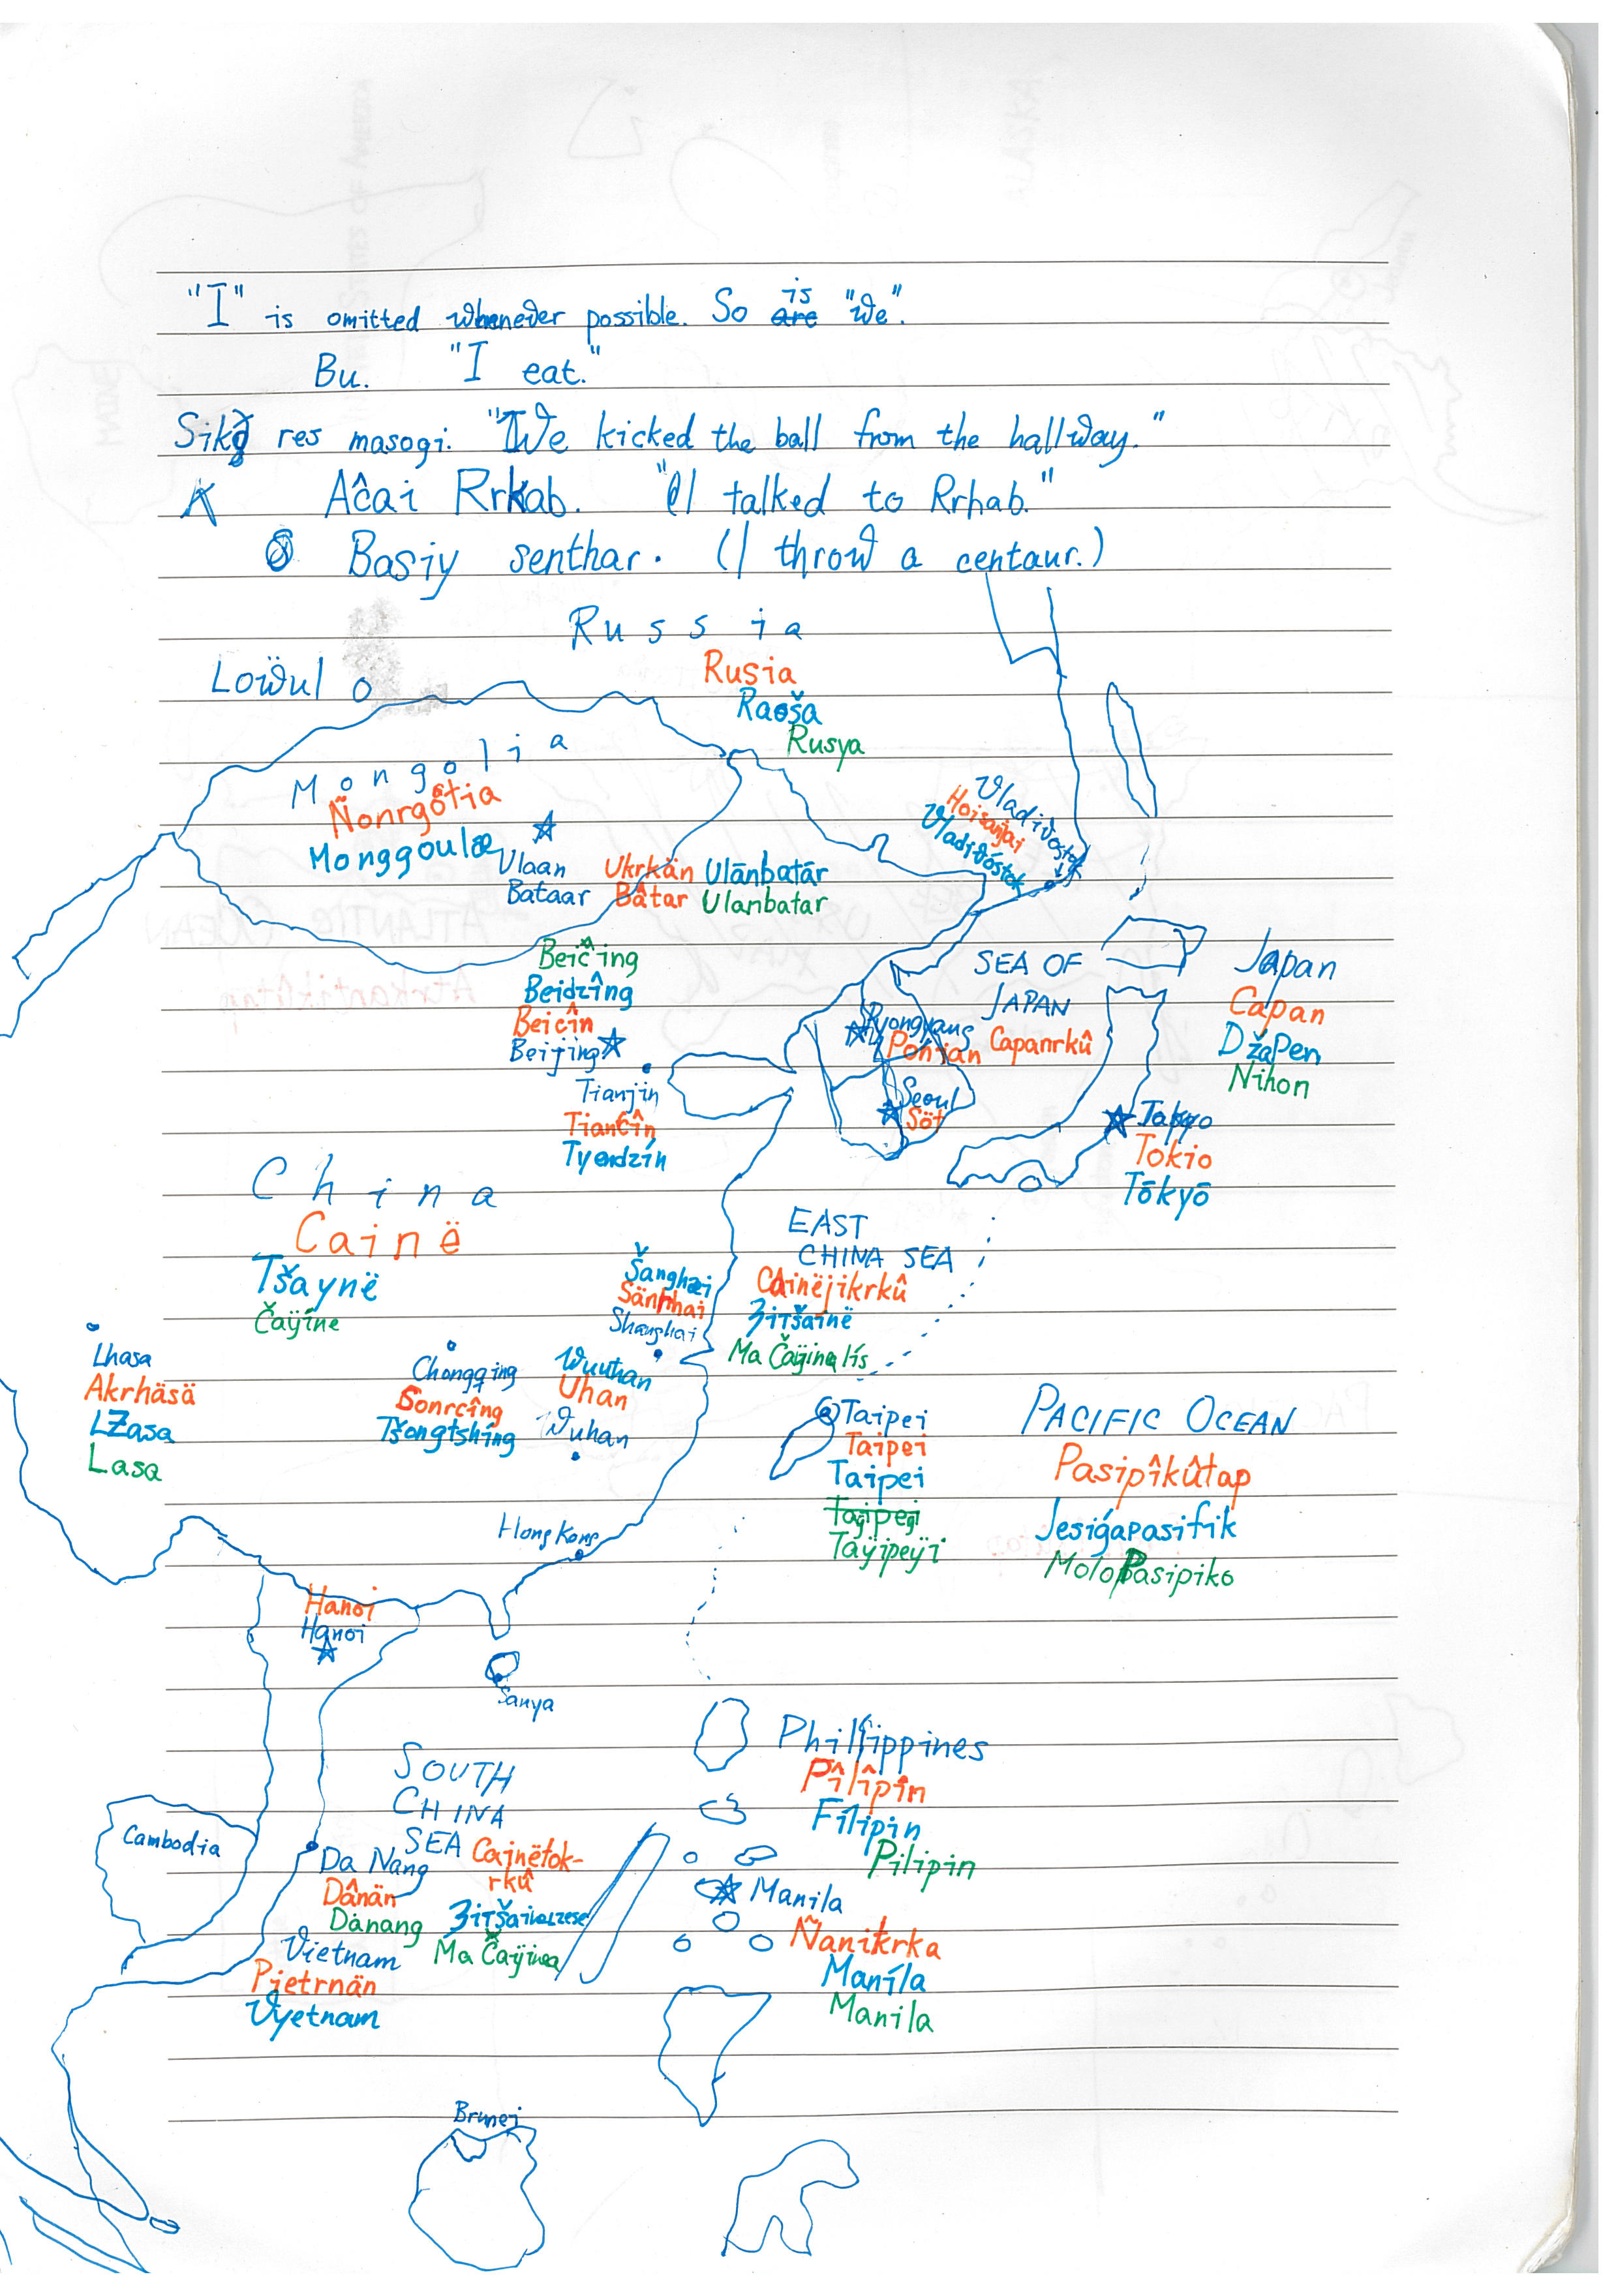 "I" is omitted whenever possible. So is "we".
Bu. "I eat."
res masogi. "We kicked the ball from the hallway."
Aĉai Rrkab. "I talked to Rrhab."
Basiy senthar. (I throw a centaur.)
Russia
Rusia
Raoša
Rusya
Loẅul
Mongolia
Ñonrgôtia
Monggoulæ
Ulaan
Bataar
Ukrkän
Bâtar
Ulānbatār
Ulanbatar
Vladivostok
Hoisanjai
Vladivóstok
Beiĉing
Beidzîng
Beicîn
Beijing
Tianjin
Tiancîn
Tyendzín
SEA OF
JAPAN
Capanrkû
Pyongyang
Ponjan
Seoul
Söt
Japan
Capan
Džapen
Nihon
Tokyo
Tokio
Tōkyō
China
Cainë
Tšaynë
Čaÿine
EAST
CHINA SEA
Cainëjikrkû
Ʒitšainë
Ma Čaÿinalís
Šanghai
Sänhai
Shanghai
Lhasa
Akrhäsä
LŽasa
Lasa
Chongqing
Sonrcîng
Tšongtshíng
Wuuhan
Uhan
Wuhan
Taipei
Taipei
Taipei
Taÿipeÿi
Taÿipeÿi
PACIFIC OCEAN
Pasipîkûtap
Jesiǵapasifik
MoloPasipiko
Hong Kong
Hanoi
Hanoi
Sanya
SOUTH
CHINA
SEA
Cainëtok-
rkû
Ma Čaÿinea
Phillippines
Pîlîpîn
Fílipin
Pilipin
Manila
Ñanikrka
Maníla
Manila
Cambodia
Da Nang
Dânän
Danang
Vietnam
Pietrnän
Vyetnam
Brunei